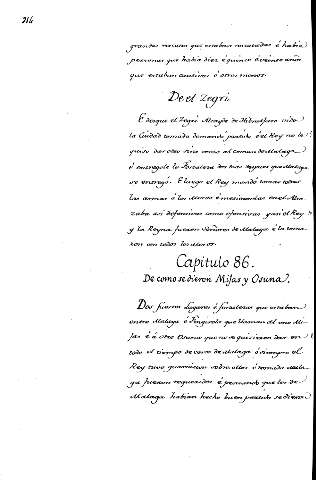 214
grandes rescates que estaban rescatados é habia
personas que habia diez é quince é veinte años
que estaban cautivos é otros menos.
De el Zegrí.
E desque el Zegrí Alcayde de Gibralfaro vido
la Ciudad tomada demandó partido é el Rey no le
quiso dar otro sino como al comun de Malaga
é entregole la Fortaleza dos dias despues que Malaga
se entregó. E luego el Rey mandó tomar todas
las armas á los Moros é encerrandolas en el Alca
zaba así defensivas como ofensivas y así el Rey
y la Reyna fueron Señores de Malaga é la toma
ron con todos los Moros.
Capitulo 86.
De como se dieron Mijas y Osuna.
Dos fueron Lugares é fortalezas que estaban
entre Malaga é Fongirola que llaman al uno Mi-
jas é á otro Osuna que no se quisieron dar en
todo el tiempo de cerco de Malaga é siempre el
Rey tuvo guarnicion sobre ellos é tomada Mala-
ga fueron requeridos é pensando que los de
Malaga habian hecho buen partido se dieron